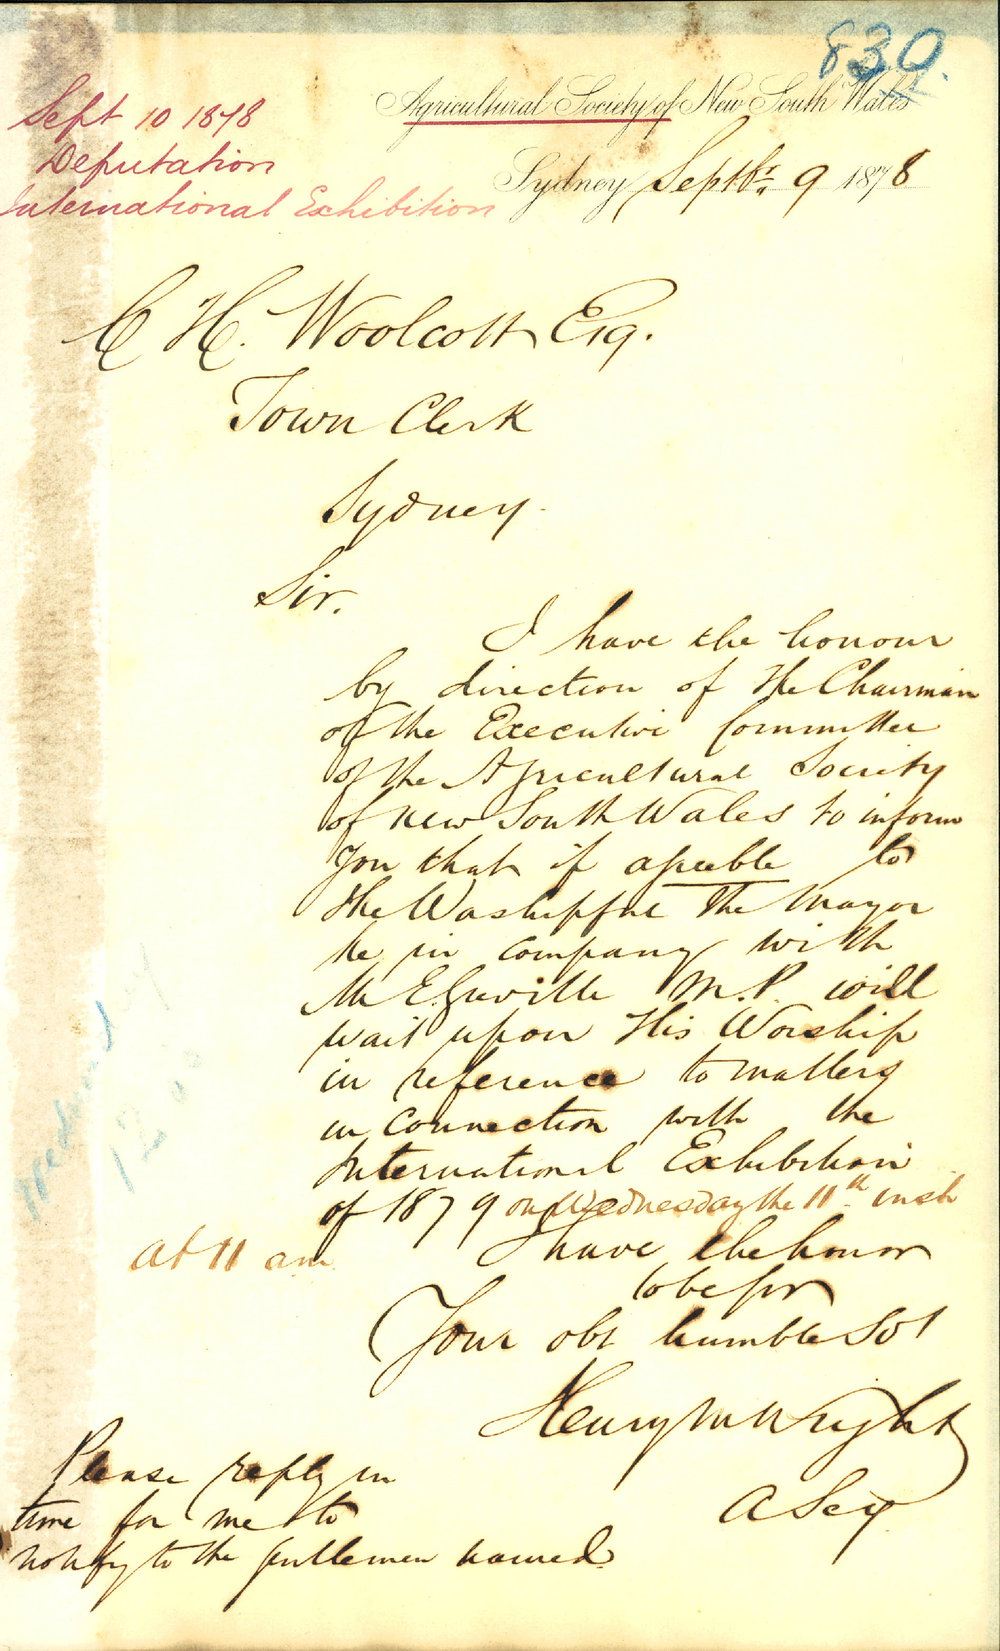 830.
Agricultural Society of New South Wales
Sept 10 1878
Deputation
International Exhibition
Sydney Septbr. 9 1878
C H. Woolcott Esq.
Town Clerk
Sydney.
Sir.
I have the honour
by direction of the Chairman
of the Executive Committee
of the Agricultural Society
of New South Wales to inform
you that if agreeble to
the Worshipful The Mayor
he in company with
Mr E. Greville M.P. will
wait upon His Worship
in reference to matters
in connection with the
International Exhibition
of 1879 on Wednesday the 11th inst
at 11 am
I have the honor
to be Sir
Your obt humble Svt
Henry M Wright
A Secy
Please reply in
time for me to
notify to the gentlemen named